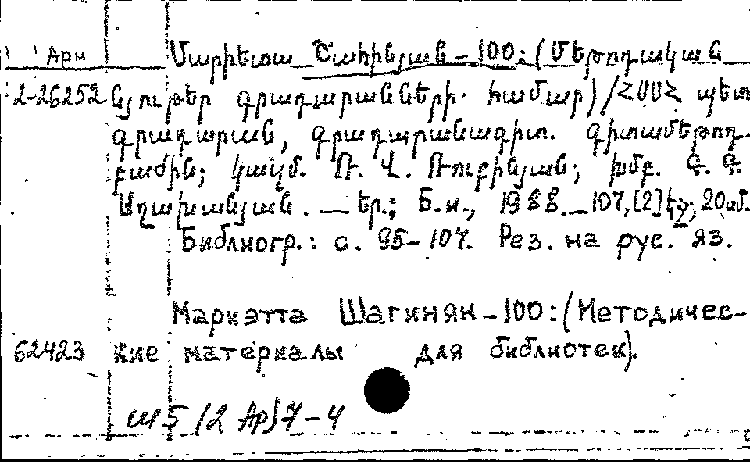 Арм Մարիետա Շահինյան – 100: (Մեթոդական
2-26252 նյութեր գրադարանների համար) / ՀՍՍՀ պետ.
գրադարան, գրադարանագիտ. գիտամեթոդ.
բաժին; կազմ. Ռ. Վ. Ռուբինյան; խմբ. Գ. Գ.
Աղախանյան. — Եր.; Б.и., 1988. — 107, [2] էջ; 20սմ.
Библиогр.: с. 95-107. Рез. на рус. яз.
Мариэтта Шагинян – 100: (Методичес-
62423 кие материалы для библиотек).
Ш5 (2 Ар) 7-4